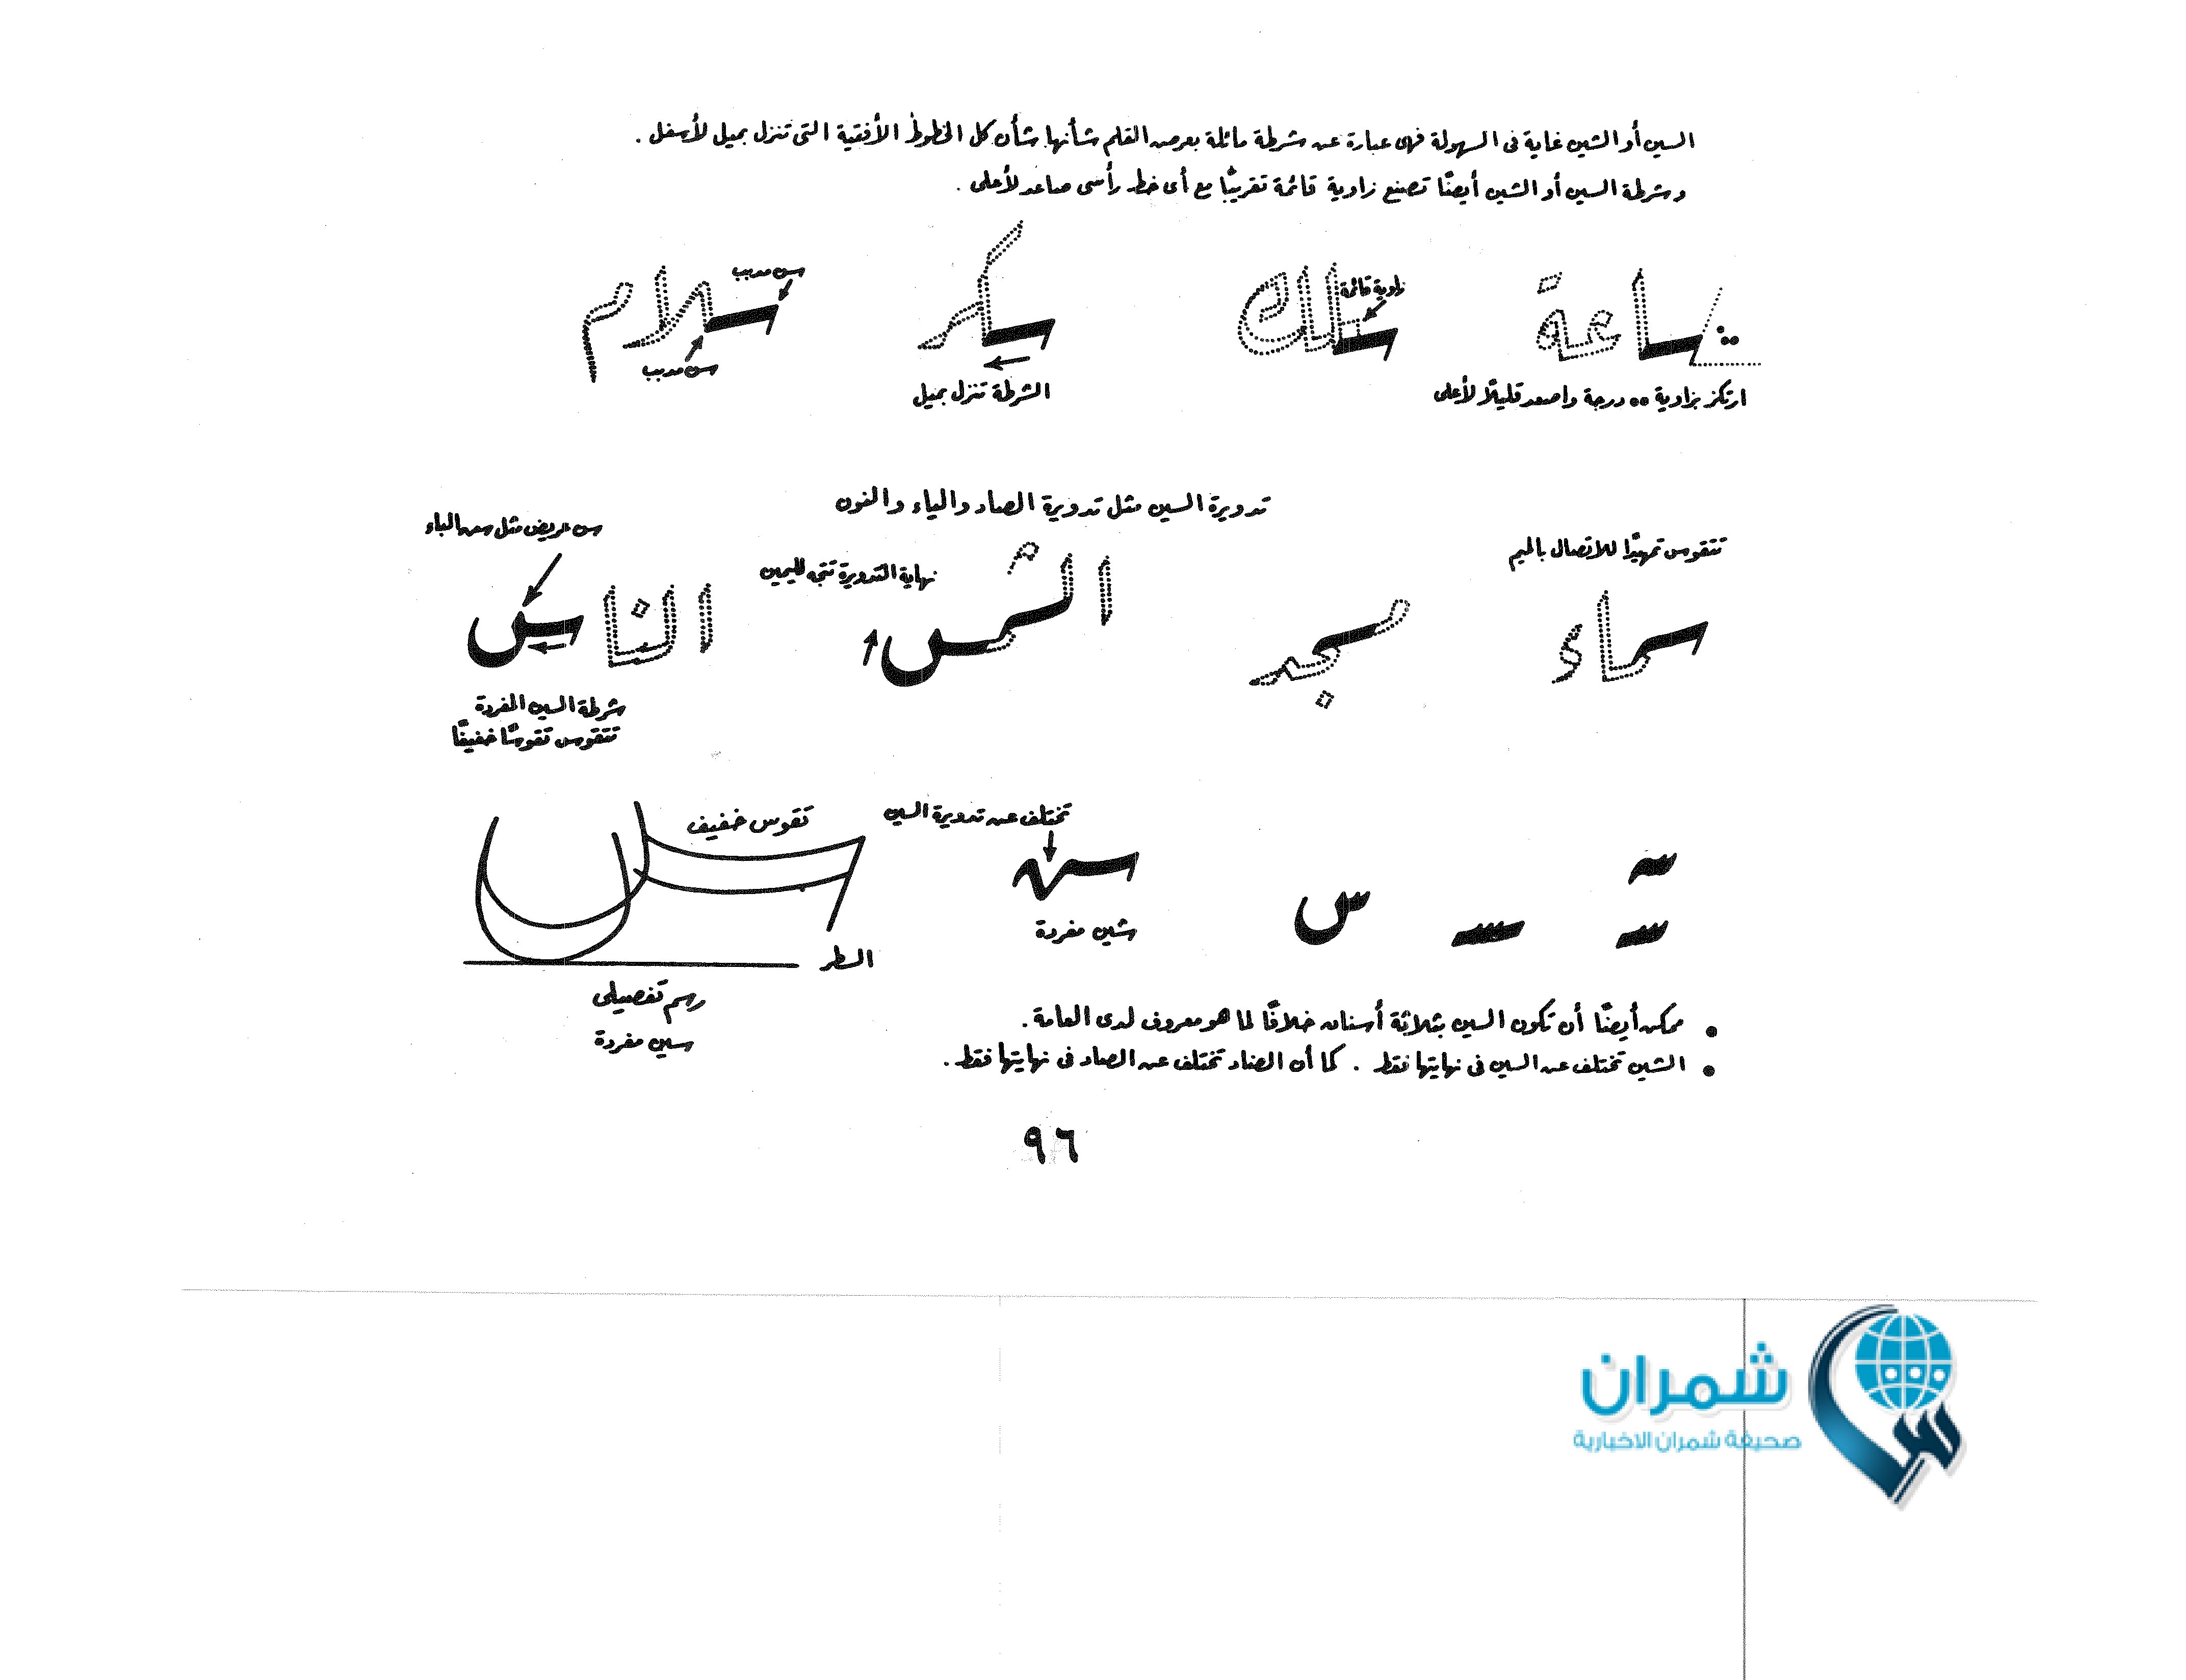 السين أو الشين غاية فى السهولة فهى عبارة عن شرطة مائلة بعرض القلم شأنها شأن كل الخطوط الأفقية التى تنزل بميل لأسفل .
وشرطة السين أو الشين أيضًا تصنع زاوية قائمة تقريبًا مع أى خط رأسى صاعد لأعلى .
ساعة
سلك
سكر
سلام
زاوية قائمة
سن مدبب
سن مدبب
ارتكز بزاوية ٥٥ درجة واصعد قليلًا لأعلى
الشرطة تنزل بميل
تدويرة السين مثل تدويرة الصاد والياء والنون
سن عريض مثل سن الياء
تتقوس تمهيدًا للاتصال بالميم
نهاية التدويرة تتجه لليمين
سماء
مسجد
الشمس
الناس
شرطة السين المفردة
تتقوس تقوسًا خفيفًا
تختلف عن تدويرة السين
تقوس خفيف
س
شين مفردة
السطر
رسم تفصيلى
سين مفردة
• ممكن أيضًا أن تكون السين بثلاثة أسنان خلافًا لما هو معروف لدى العامة .
• الشين تختلف عن السين فى نهايتها فقط . كما أن الضاد تختلف عن الصاد فى نهايتها فقط .
٩٦
شمران
صحيفة شمران الاخبارية